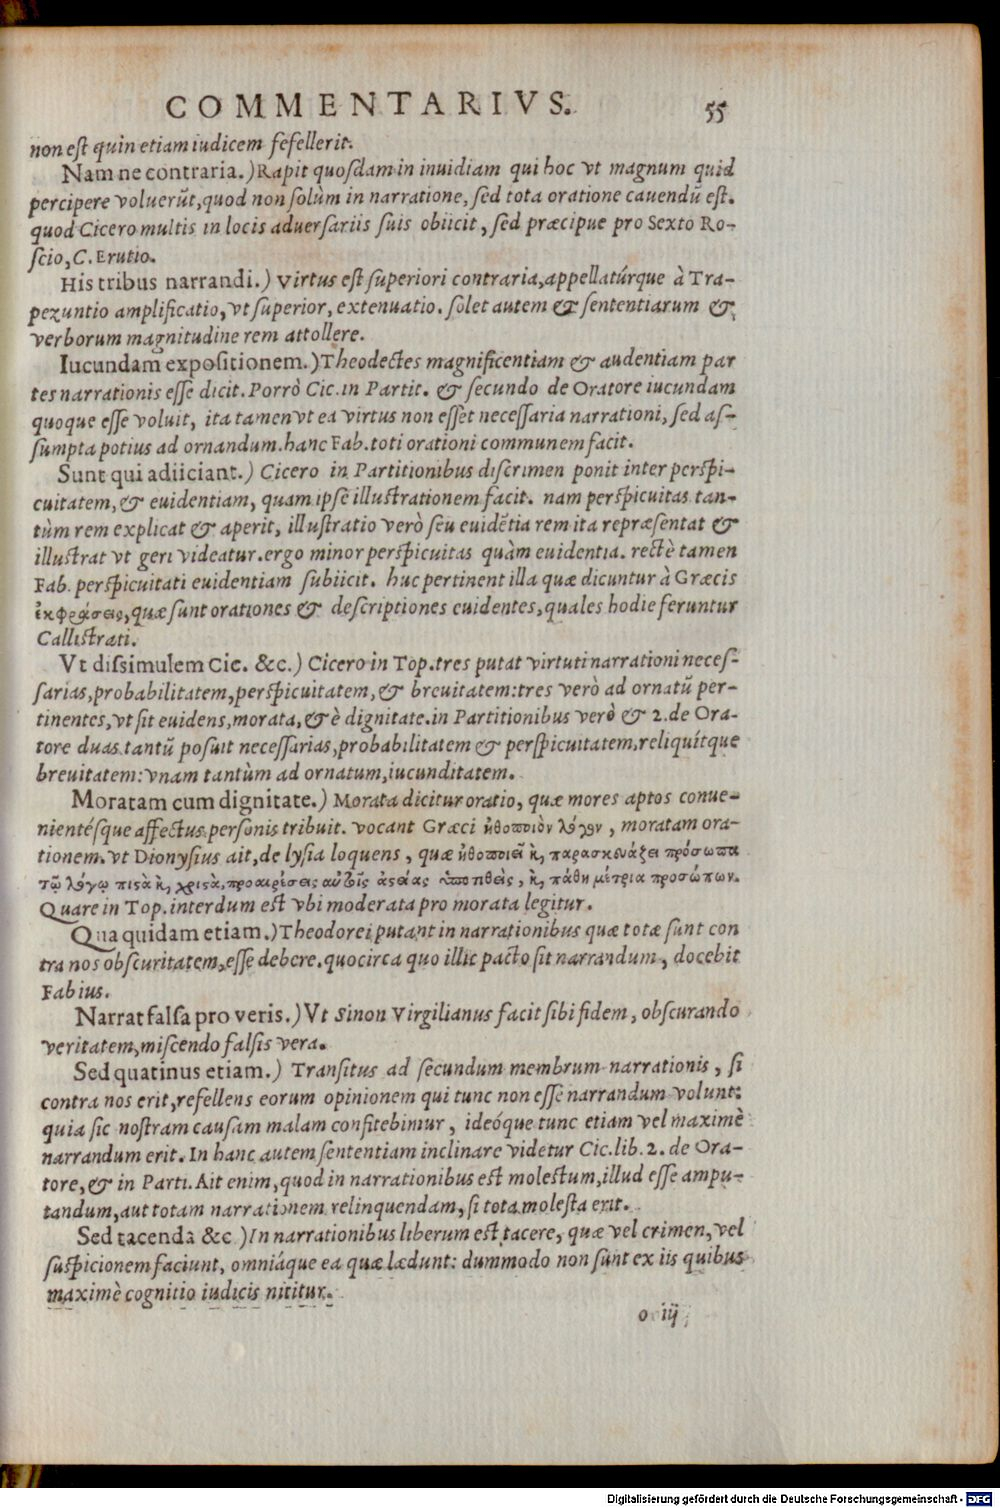 COMMENTARIVS. 55
non est quin etiam iudicem fefellerit.
Nam ne contraria.) Rapit quosdam in inuidiam qui hoc vt magnum quid
percipere voluerūt, quod non solùm in narratione, sed tota oratione cauendū est.
quod Cicero multis in locis aduersariis suis obiicit, sed præcipue pro Sexto Ro-
scio, C. Erutio.
His tribus narrandi.) Virtus est superiori contraria, appellatúrque à Tra-
pezuntio amplificatio, vt superior, extenuatio. solet autem & sententiarum &
verborum magnitudine rem attollere.
Iucundam expositionem.) Theodectes magnificentiam & audentiam par
tes narrationis esse dicit. Porrò Cic. in Partit. & secundo de Oratore iucundam
quoque esse voluit, ita tamen vt ea virtus non esset necessaria narrationi, sed as-
sumpta potius ad ornandum. hanc Fab. toti orationi communem facit.
Sunt qui adiiciant.) Cicero in Partitionibus discrimen ponit inter perspi-
cuitatem, & euidentiam, quam ipse illustrationem facit. nam perspicuitas tan-
tùm rem explicat & aperit, illustratio verò seu euidētia rem ita repræsentat &
illustrat vt geri videatur. ergo minor perspicuitas quàm euidentia. rectè tamen
Fab. perspicuitati euidentiam subiicit. huc pertinent illa quæ dicuntur à Græcis
ἐκφράσεις, quæ sunt orationes & descriptiones euidentes, quales hodie feruntur
Callistrati.
Vt dissimulem Cic. &c.) Cicero in Top. tres putat virtuti narrationi neces-
sarias, probabilitatem, perspicuitatem, & breuitatem: tres verò ad ornatū per-
tinentes, vt sit euidens, morata, & è dignitate. in Partitionibus verò & 2. de Ora-
tore duas tantū posuit necessarias, probabilitatem & perspicuitatem, reliquítque
breuitatem: vnam tantùm ad ornatum, iucunditatem.
Moratam cum dignitate.) Morata dicitur oratio, quæ mores aptos conue-
nientésque affectus personis tribuit. vocant Græci ἠθοποιὸν λόγον, moratam ora-
tionem. vt Dionysius ait, de lysia loquens, quæ ἠθοποιεῖ κ, παρασκευάζει πρόσωπα
τῷ λόγῳ πιστὰ κ, χριστὰ, προαιρέσεις αὐτοῖς ἀστείας ὑποτιθεὶς, κ, πάθη μέτρια προσώπων.
Quare in Top. interdum est vbi moderata pro morata legitur.
Qua quidam etiam.) Theodorei putant in narrationibus quæ totæ sunt con
tra nos obscuritatem, esse debere. quocirca quo illic pacto sit narrandum, docebit
Fabius.
Narrat falsa pro veris.) Vt Sinon Virgilianus facit sibi fidem, obscurando
veritatem, miscendo falsis vera.
Sed quatinus etiam.) Transitus ad secundum membrum narrationis, si
contra nos erit, refellens eorum opinionem qui tunc non esse narrandum volunt:
quia sic nostram causam malam confitebimur, ideóque tunc etiam vel maximè
narrandum erit. In hanc autem sententiam inclinare videtur Cic. lib. 2. de Ora-
tore, & in Parti. Ait enim, quod in narrationibus est molestum, illud esse ampu-
tandum, aut totam narrationem relinquendam, si tota molesta erit.
Sed tacenda &c.) In narrationibus liberum est tacere, quæ vel crimen, vel
suspicionem faciunt, omniáque ea quæ lædunt: dummodo non sunt ex iis quibus
maximè cognitio iudicis nititur.
o iij
Digitalisierung gefördert durch die Deutsche Forschungsgemeinschaft - DFG